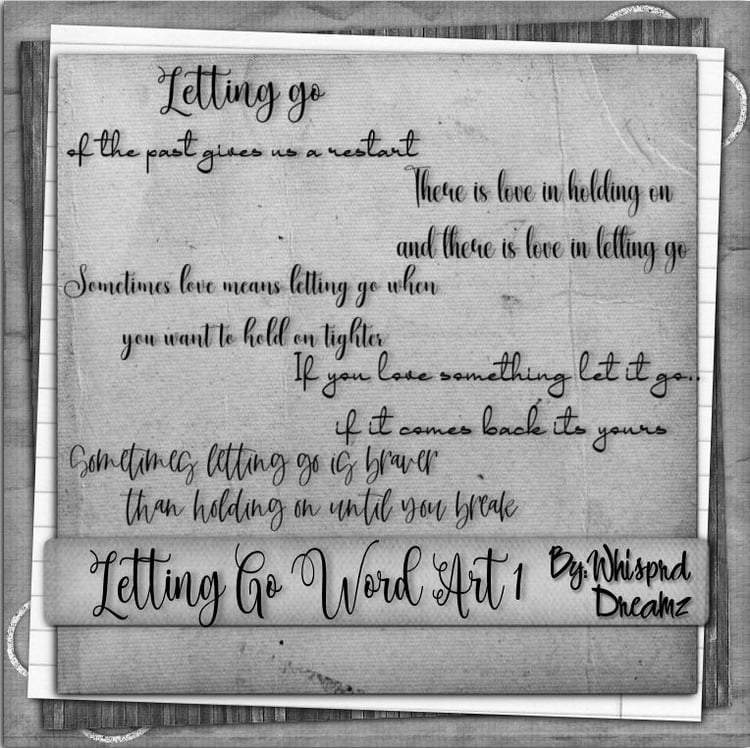 Letting go
of the past gives us a restart
There is love in holding on
and there is love in letting go
Sometimes love means letting go when
you want to hold on tighter
If you love something let it go..
if it comes back its yours
Sometimes letting go is braver
than holding on until you break
Letting Go Word Art 1
By:Whisprd
Dreamz